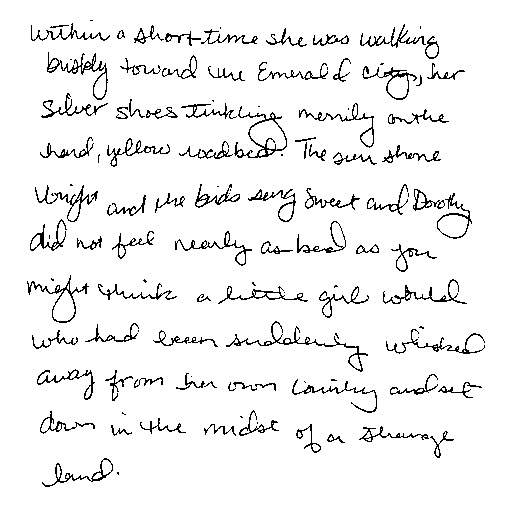 within a short time she was walking
briskly toward the Emerald City, her
Silver shoes tinkling merrily on the
hard, yellow roadbed. The sun shone
bright and the birds sung sweet and Dorothy
did not feel nearly as bad as you
might think a little girl would
who had been suddenly whisked
away from her own country and set
down in the midst of a strange
land.